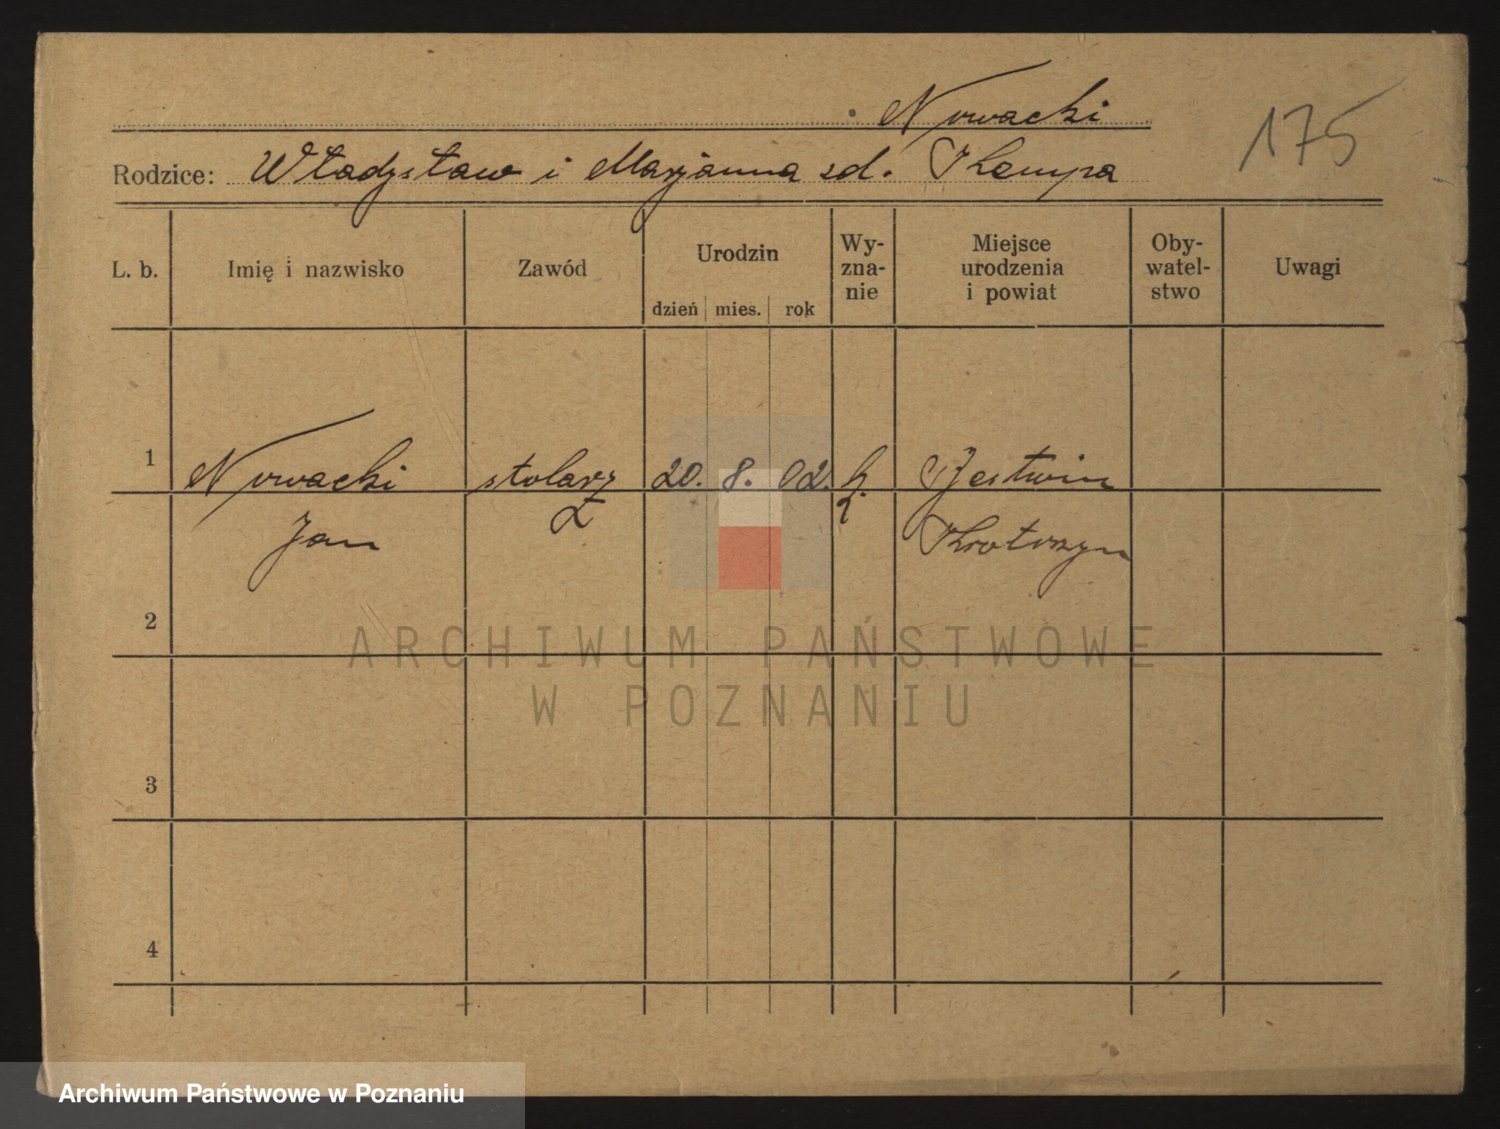 Nowacki
175
Rodzice: Władysław i Marjanna zd. Kempa
L. b. Imię i nazwisko Zawód Urodzin dzień mies. rok Wy-zna-nie Miejsce urodzenia i powiat Oby-watel-stwo Uwagi
1 Nowacki stolarz 20. 8. 02.
Jan Krotoszyn
2
ARCHIWUM PAŃSTWOWE
W POZNANIU
3
4
Archiwum Państwowe w Poznaniu